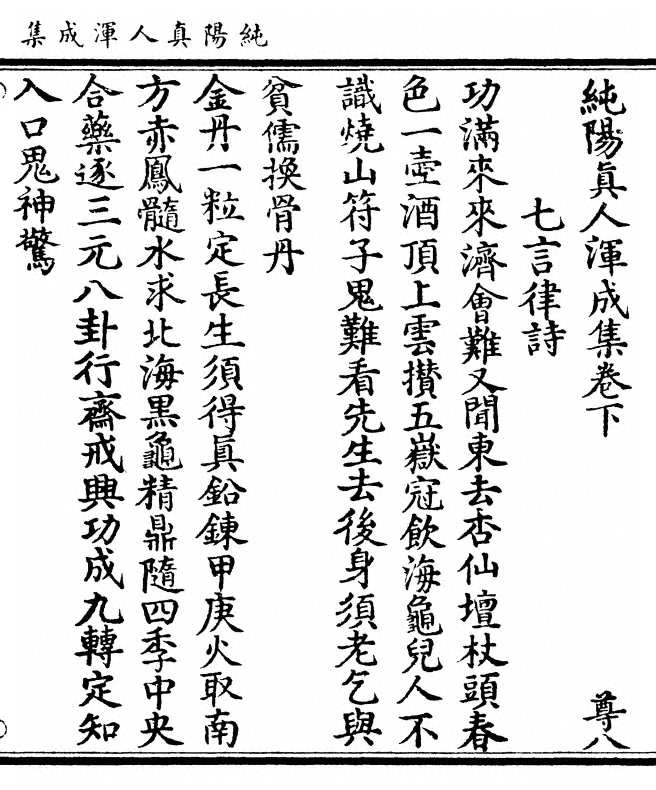 純陽真人渾成集
純陽眞人渾成集卷下
尊八
七言律詩
功滿來來濟會難又聞東去杏仙壇杖頭春
色一壺酒頂上雲攅五嶽冠飲海龜兒人不
識燒山符子鬼難看先生去後身須老乞與
貧儒換骨丹
金丹一粒定長生須得眞鉛鍊甲庚火取南
方赤鳳髓水求北海黑龜精鼎隨四季中央
合藥逐三元八卦行齋戒興功成九轉定知
入口鬼神驚